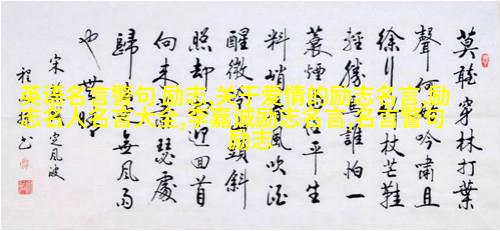 莫聽穿林打葉
聲何妨吟嘯且
徐行竹杖芒鞋
輕勝馬誰怕一
蓑煙雨任平生
料峭春風吹酒
醒微冷山頭斜
照却相迎回首
向来蕭瑟處
歸去也無風雨
也無晴
宋蘇軾定風波
英语名言警句,励志,关于爱情的励志名言,励
志名人名言大全,李嘉诚励志名言,名言警句
励志